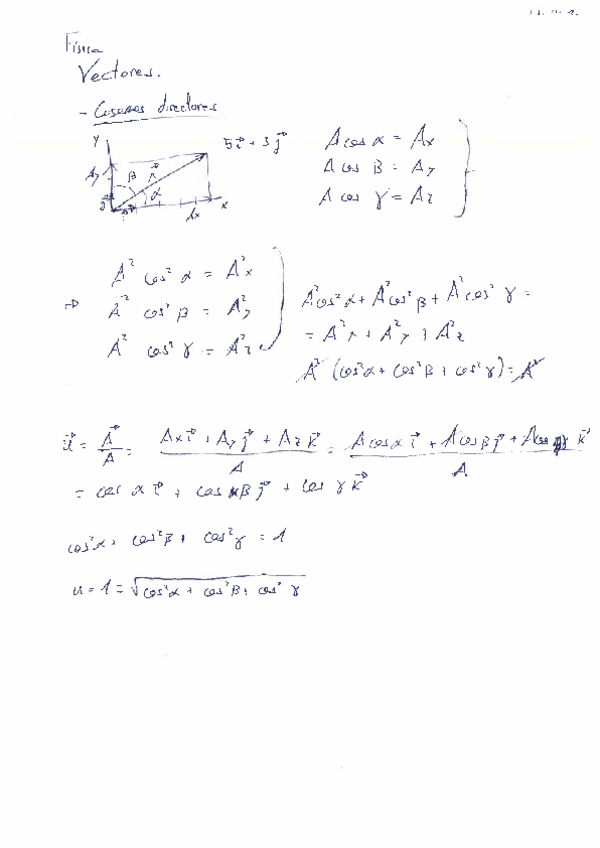 Física
Vectores.
- Cosenos directores
y
5i⃗ + 3j⃗
A cos α = Ax
Ay β A⃗ α
A cos β = Ay
j⃗ i⃗ Ax x
A cos γ = Az
A² cos² α = A²x
⇒ A² cos² β = A²y
A² cos² γ = A²z
A²cos²α + A²cos²β + A²cos²γ =
= A²x + A²y + A²z
A² (cos²α + cos²β + cos²γ) = A²
u⃗ = A⃗/A = (Ax i⃗ + Ay j⃗ + Az k⃗)/A = (A cos α i⃗ + A cos β j⃗ + A cos γ k⃗)/A
= cos α i⃗ + cos β j⃗ + cos γ k⃗
cos²α + cos²β + cos²γ = 1
u = 1 = √(cos²α + cos²β + cos²γ)